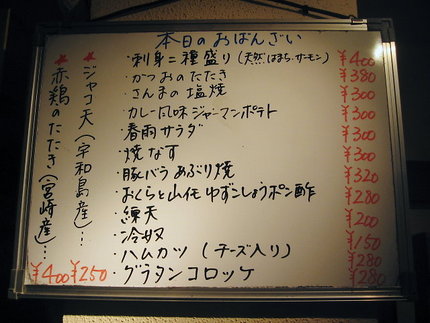 本日のおばんざい
・刺身二種盛り(天然はまち、サーモン) ¥400
・かつおのたたき ¥380
・さんまの塩焼 ¥300
・カレー風味ジャーマンポテト ¥300
・春雨サラダ ¥300
・焼なす ¥300
・豚バラあぶり焼 ¥320
・おくらと山イモゆずこしょうポン酢 ¥280
・練天 ¥200
・冷奴 ¥150
・ハムカツ(チーズ入り) ¥280
・グラタンコロッケ ¥280
*ジャコ天(宇和島産)… ¥250
*赤鶏のたたき(宮崎産)… ¥400